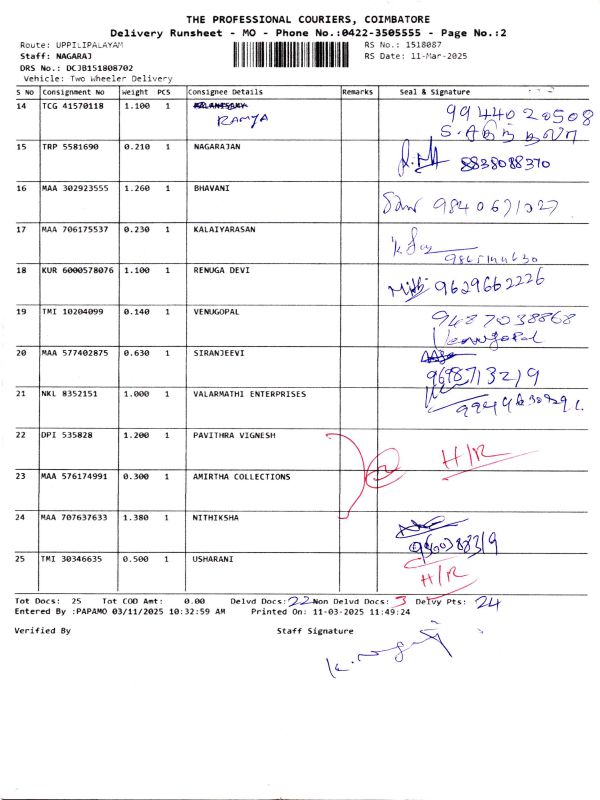 THE PROFESSIONAL COURIERS, COIMBATORE
Delivery Runsheet - MO - Phone No.:0422-3505555 - Page No.:2
Route: UPPILIPALAYAM RS No.: 1518087
Staff: NAGARAJ RS Date: 11-Mar-2025
DRS No.: DCJB151808702
Vehicle: Two Wheeler Delivery
S No Consignment No Weight PCS Consignee Details Remarks Seal & Signature
14 TCG 41570118 1.100 1 9944020508
RAMYA
15 TRP 5581690 0.210 1 NAGARAJAN
8838088370
16 MAA 302923555 1.260 1 BHAVANI
9840671027
17 MAA 706175537 0.230 1 KALAIYARASAN
18 KUR 6000578076 1.100 1 RENUGA DEVI
9629662226
19 TMI 10204099 0.140 1 VENUGOPAL 9487038868
Venugopal
20 MAA 577402875 0.630 1 SIRANJEEVI
9698713219
21 NKL 8352151 1.000 1 VALARMATHI ENTERPRISES
22 DPI 535828 1.200 1 PAVITHRA VIGNESH
H/R
23 MAA 576174991 0.300 1 AMIRTHA COLLECTIONS
24 MAA 707637633 1.380 1 NITHIKSHA
25 TMI 30346635 0.500 1 USHARANI
H/R
Tot Docs: 25 Tot COD Amt: 0.00 Delvd Docs: 22 Non Delvd Docs: 3 Delvy Pts: 24
Entered By :PAPAMO 03/11/2025 10:32:59 AM Printed On: 11-03-2025 11:49:24
Verified By Staff Signature